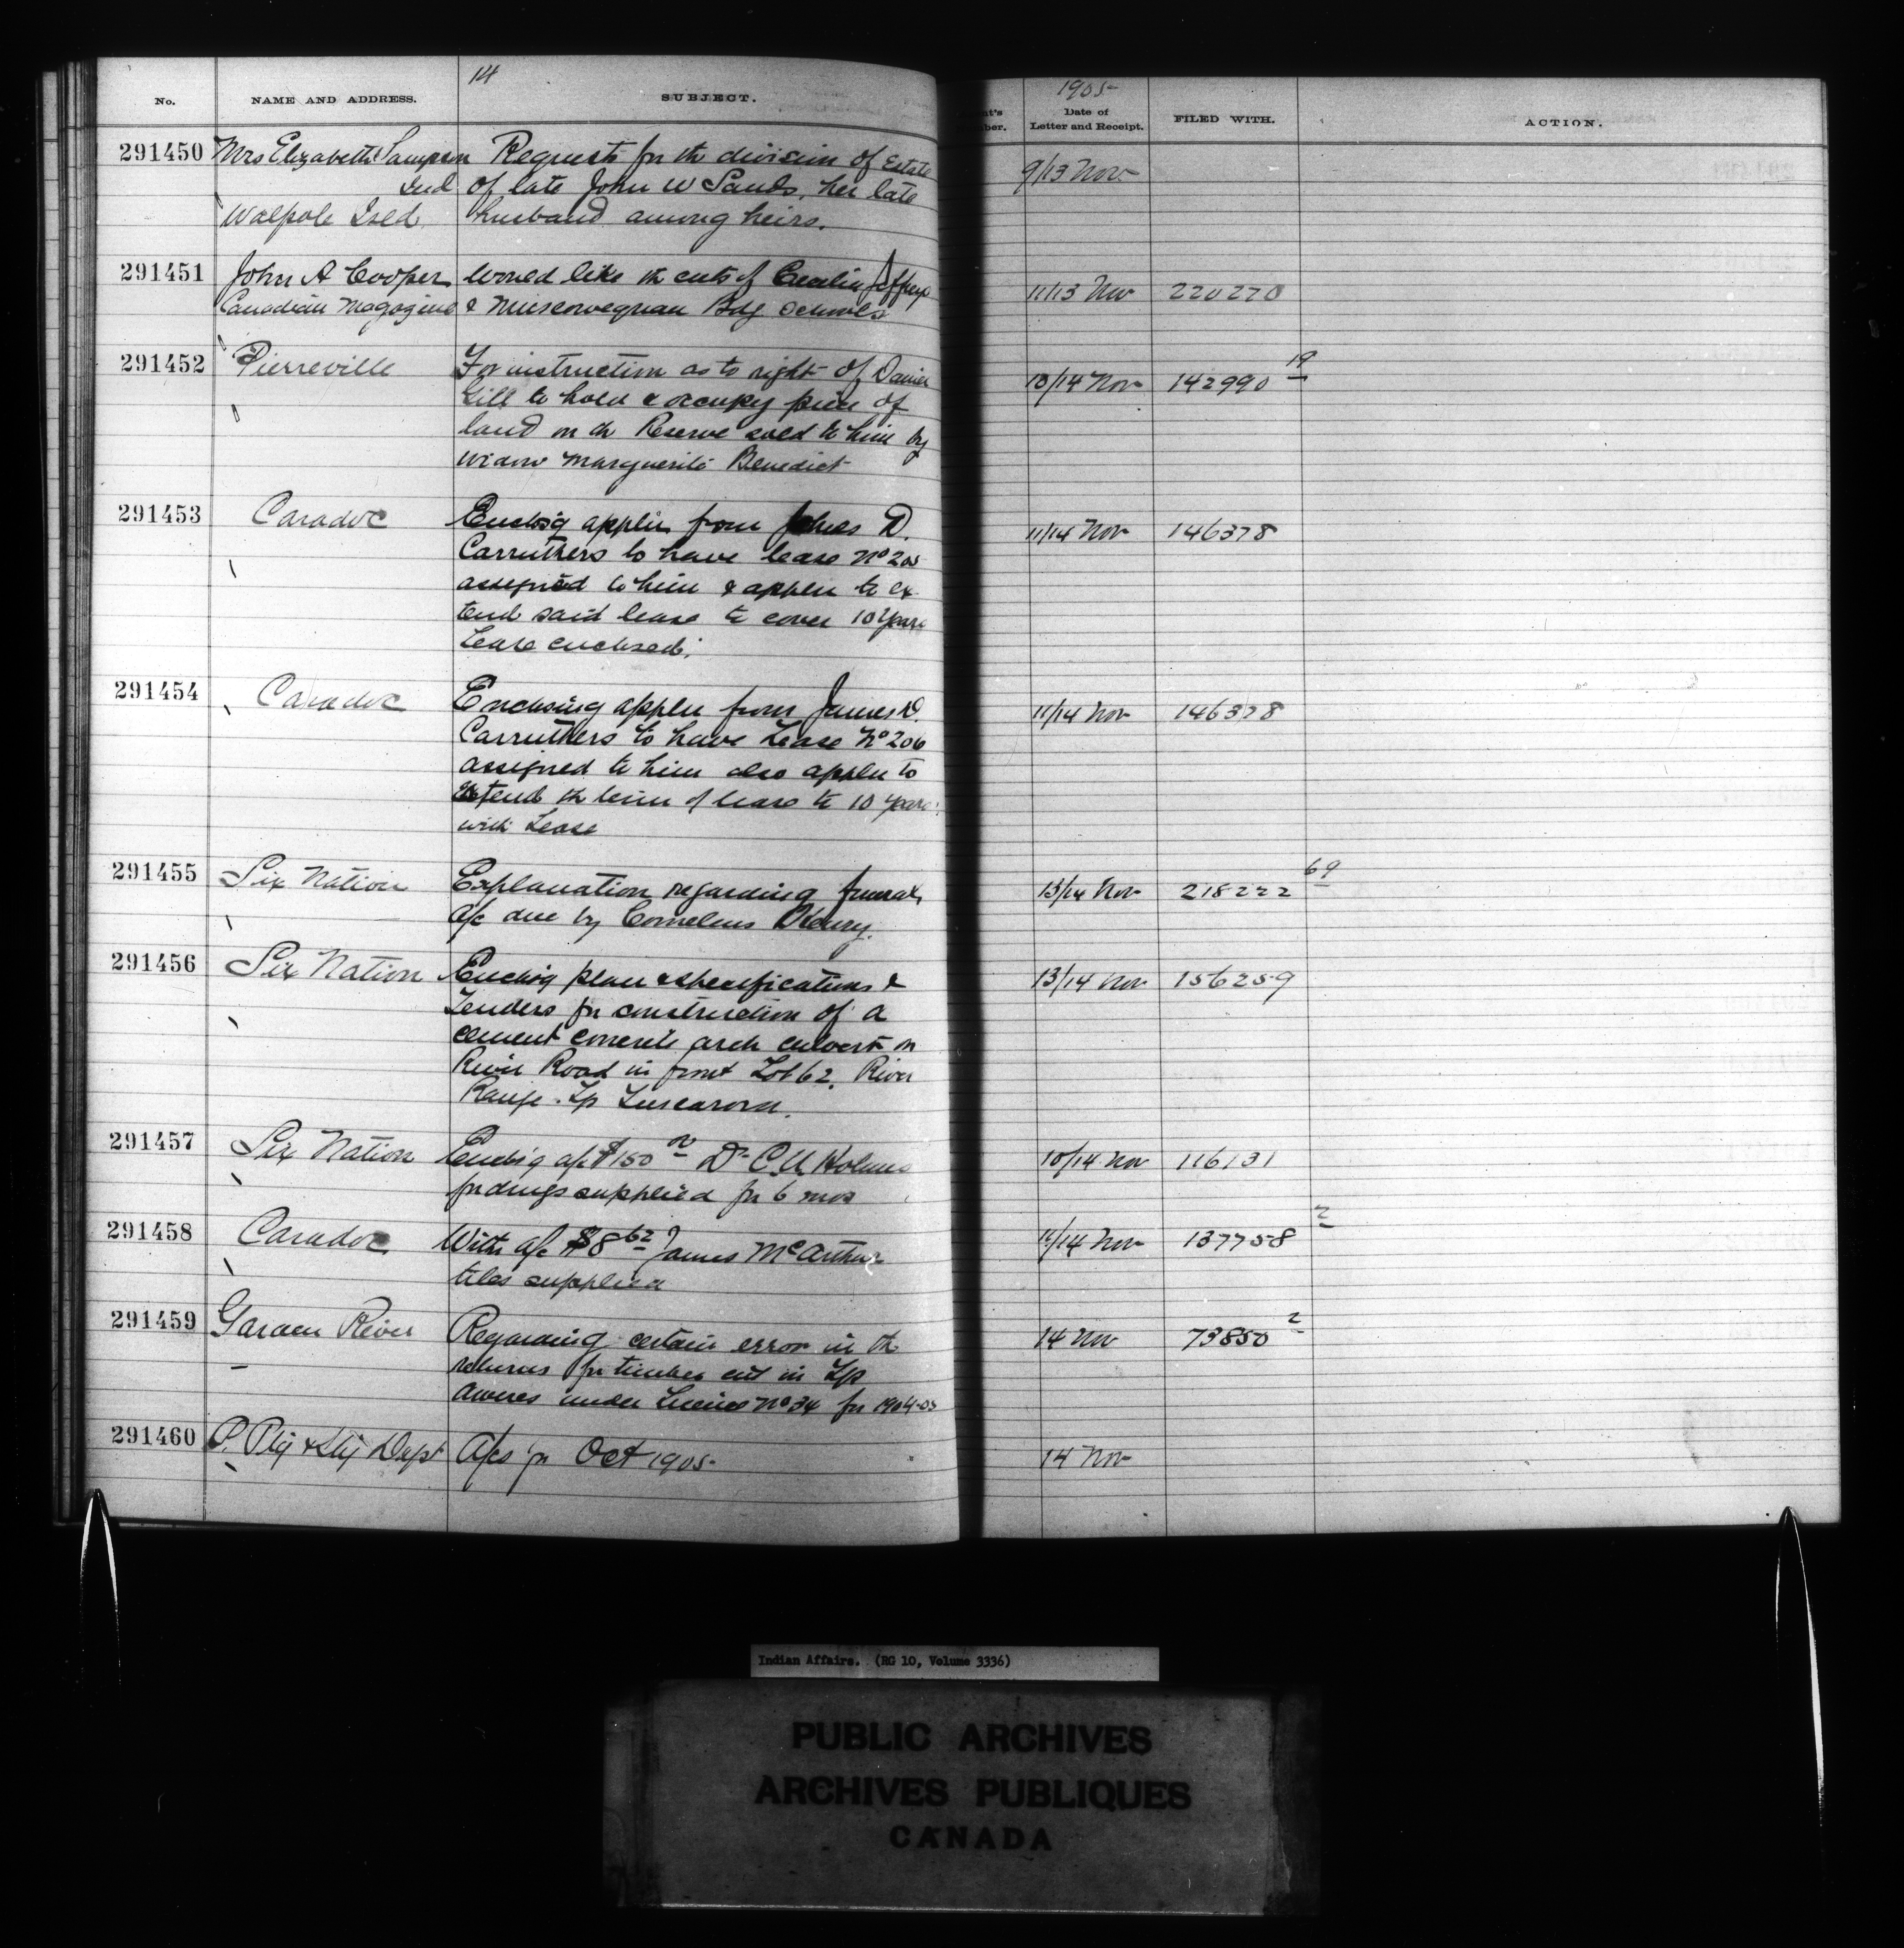 14
No.
NAME AND ADDRESS.
SUBJECT.
1905
Date of
Letter and Receipt.
FILED WITH.
ACTION.
291450 Mrs Elizabeth Sampson Requests for th division of Estate 9/13 Nov
Ind of late John W Sands, her late
Walpole Isld husband among heirs.
291451 John A Cooper Would like th cuts of Cecilia Jeffrey 11/13 Nov 220270
Canadian Magazine & Bdg Schools
291452 Pierreville For instruction as to right of Daniel 10/14 Nov 142990 19
Gill to hold & occupy piece of
land on th Reserve sold to him by
widow Marguerite Benedict
291453 Caradoc Enclosg applin from James D. 11/14 Nov 146378
Carruthers to have lease No 205
assigned to him & applin to ex
tend said lease to cover 10 years
Lease enclosed.
291454 Caradoc Enclosing applin from James D. 11/14 Nov 146378
Carruthers to have Lease No 206
assigned to him also applin to
extend th term of lease to 10 years
with Lease
291455 Six Nation Explanation regarding funeral 13/14 Nov 218222 69
a/c due by Cornelius
291456 Six Nation Enclosg plan & specifications & 13/14 Nov 156259
Tenders for construction of a
cement concrete arch culvert on
River Road in front Lot 62. River
Range. Tp Tuscarora.
291457 Six Nation Enclos'g a/c $150 Dr Holmes 10/14 Nov 116131
for drugs supplied for 6 mos
291458 Caradoc With a/c $8 62 James McArthur 11/14 Nov 137758 2
tiles supplied
291459 Garden River Regarding certain error in th 14 Nov 73850 2
returns for timber cut in Tp
Aweres under License No 34 for 1904-05
291460 P. Ptg & Sty Dept A/cs for Oct 1905 14 Nov
Indian Affairs. (RG 10, Volume 3336)
PUBLIC ARCHIVES
ARCHIVES PUBLIQUES
CANADA